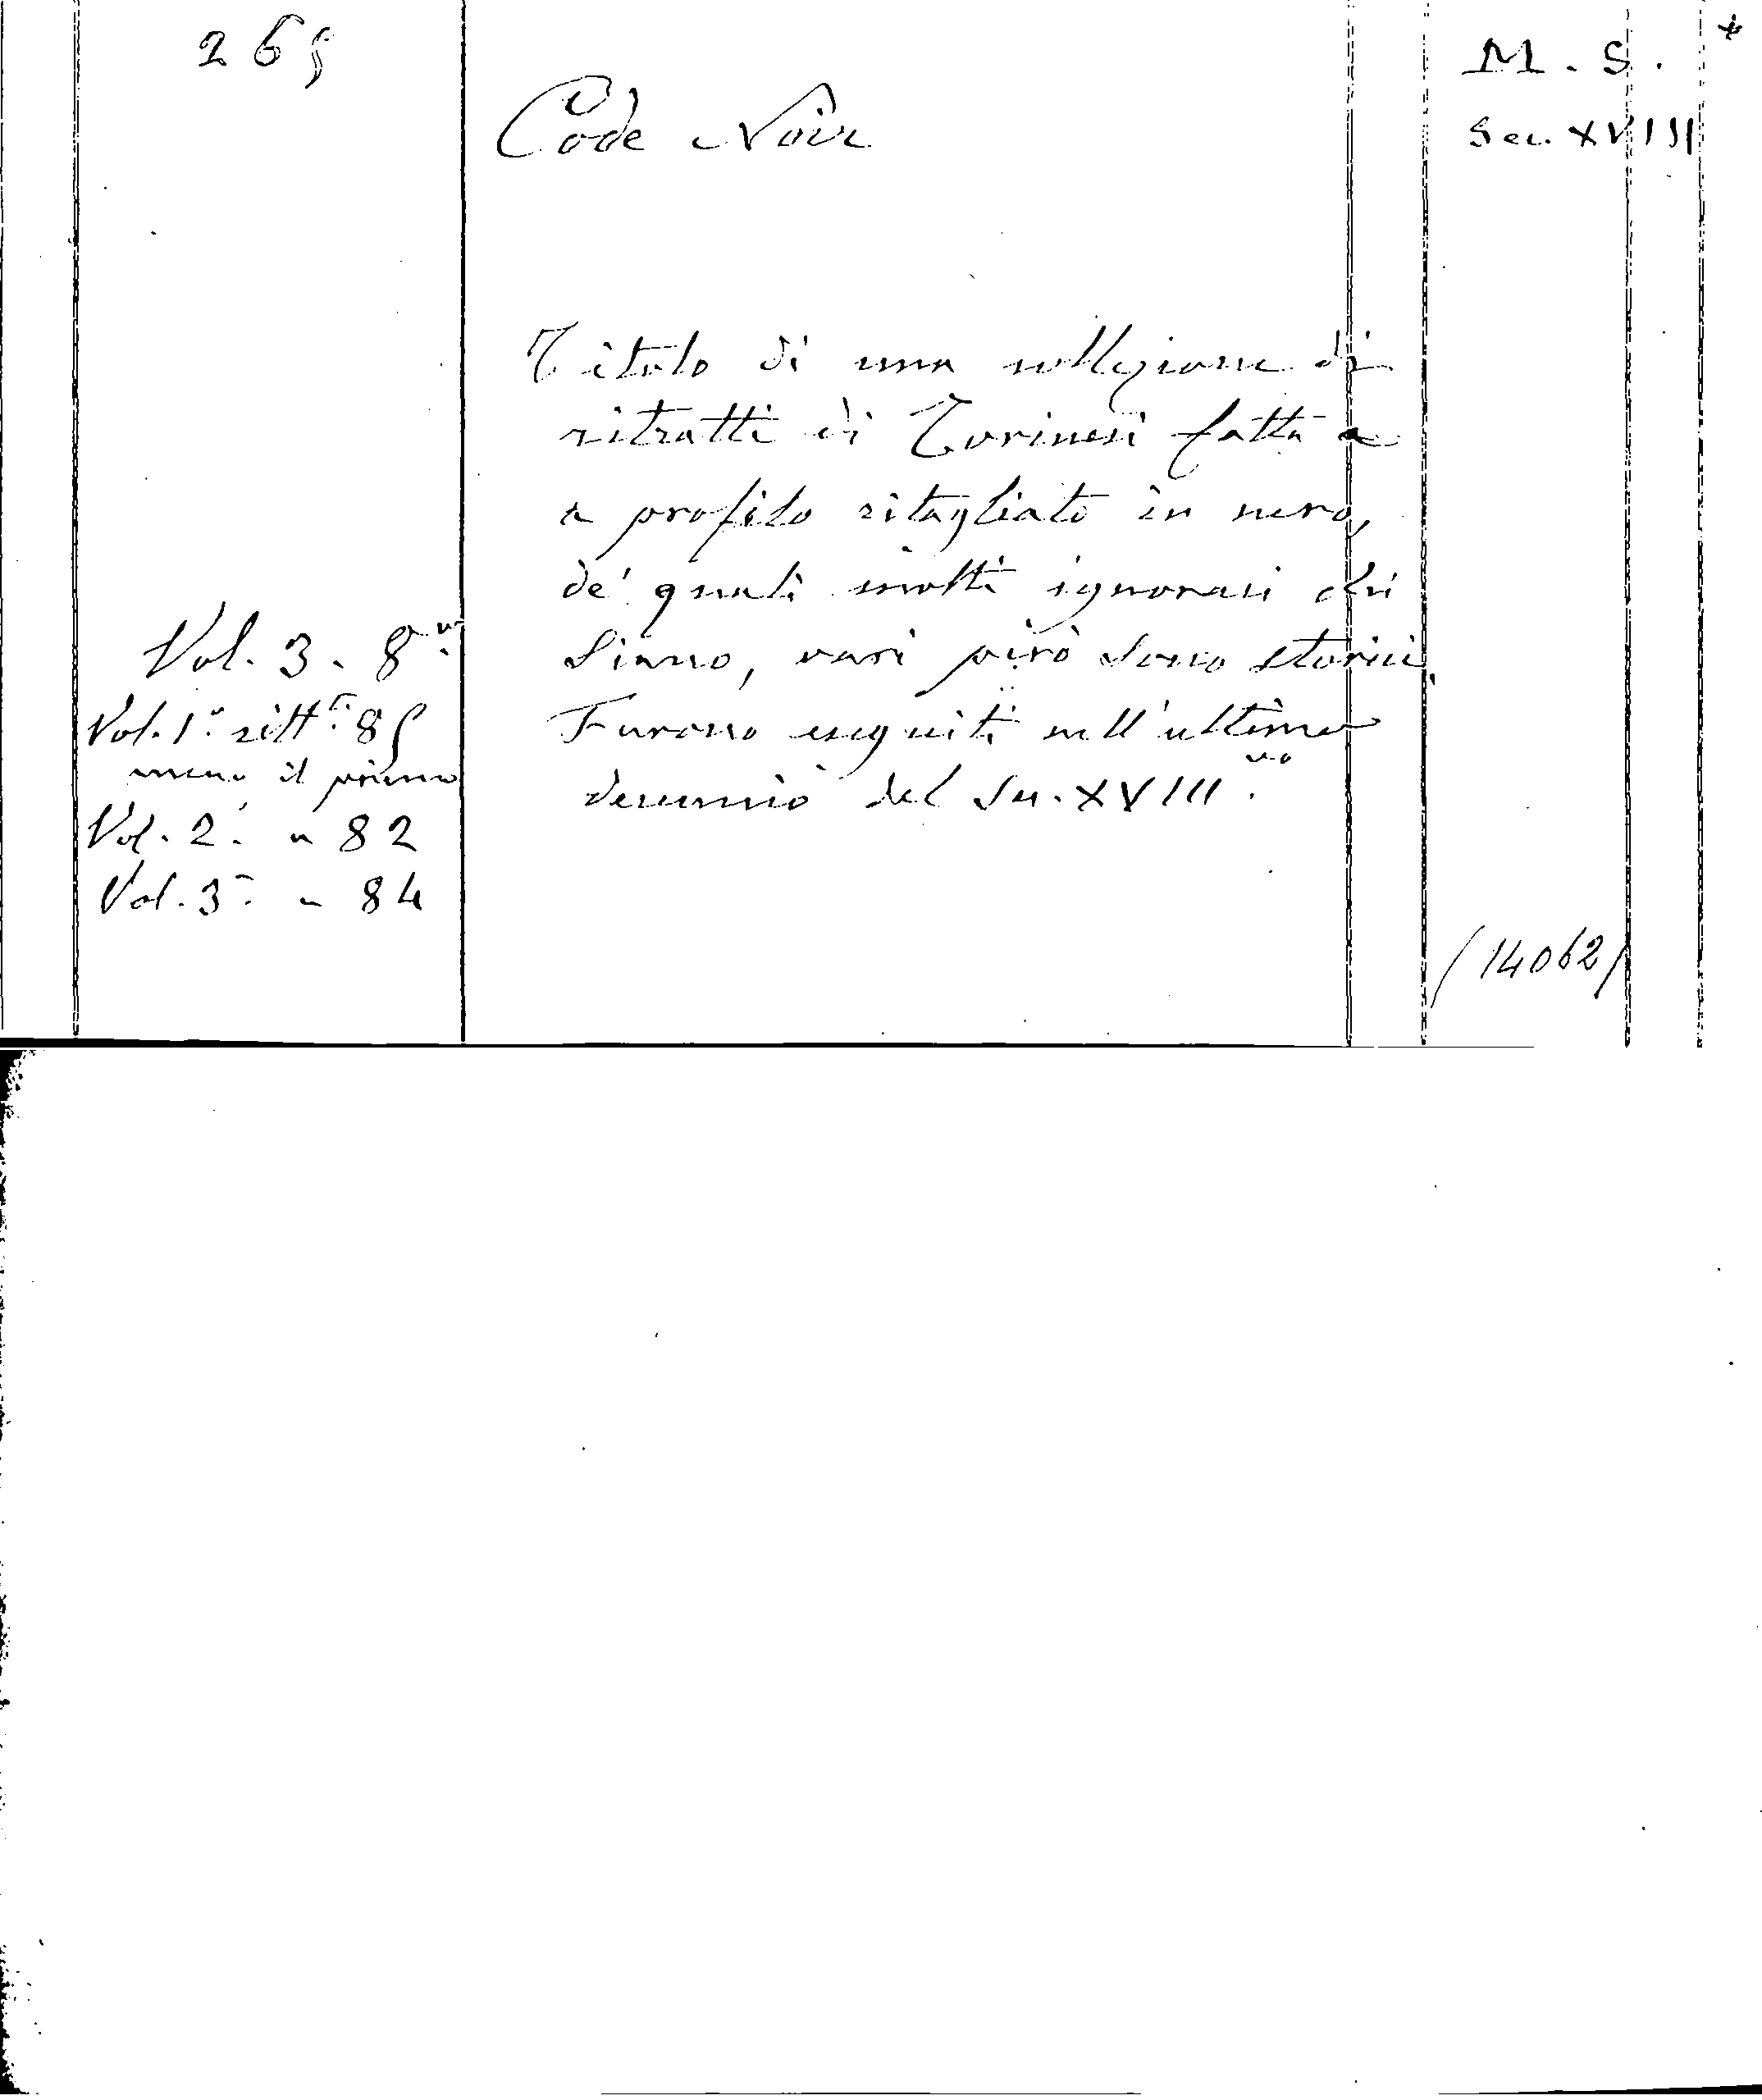 265
M. S. *
Sec. XVIII
Code Noir
Titolo di una collezione di
ritratti di Torinesi fatta a
a profilo ritagliato in nero,
de' quali molti ignorasi chi
siano, vari però sono storici.
Furono eseguiti nell'ultimo
decennio del Sec. XVIII.mo
Vol. 3. 8.o
Vol. 1.o ritt.ti 85
meno il primo
Vol. 2.o " 82
Vol. 3.o " 84
(14062)